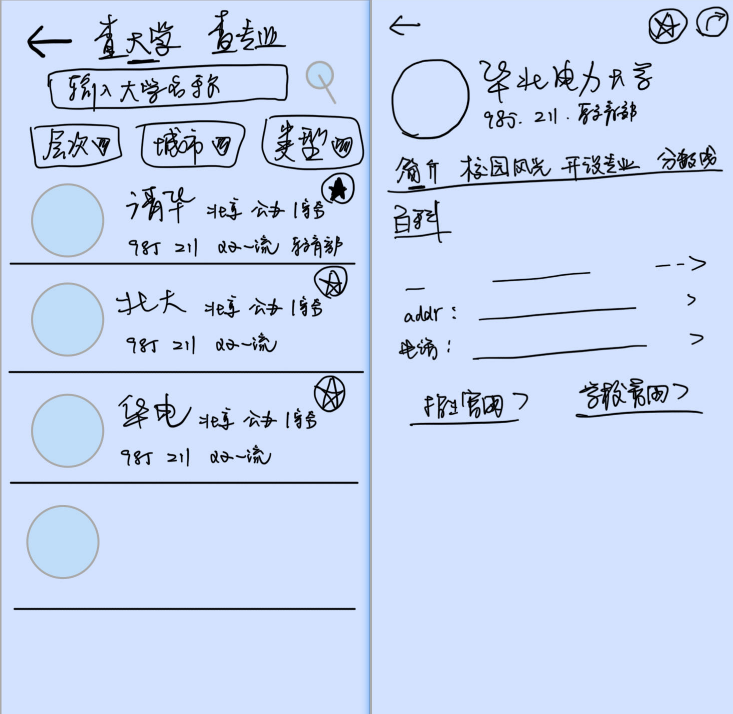 查大学 查专业
输入大学名称
层次 城市 类型
清华 北京 公办
985 211 双一流 教育部
北大 北京 公办
985 211 双一流
华电 北京 公办
985 211 双一流
华北电力大学
985. 211. 教育部
简介 校园风光 开设专业 分数线
百科
addr:
电话:
招生官网 > 学校官网 >